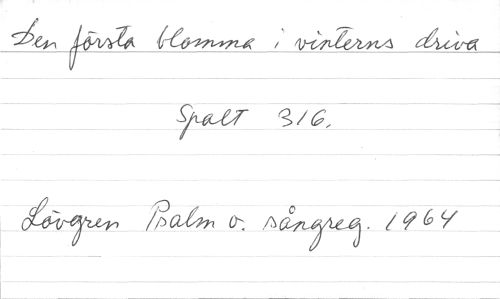 Den första blomma i vinterns driva
Spalt 316.
Lövgren Psalm o. sångreg. 1964